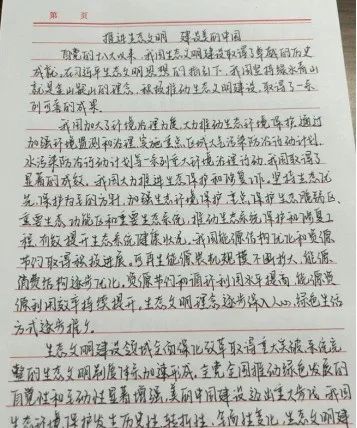 第 页
推进生态文明 建设美丽中国
自党的十八大以来,我国生态文明建设取得了卓越的历史
成就,在习近平生态文明思想的指引下,我国坚持绿水青山
就是金山银山的理念,积极推动生态文明建设,取得了一系
列可喜的成果。
我国加大了环境治理力度,大力推动生态环境保护,通过
加强环境监测和治理,实施重点区域大气污染防治行动计划、
水污染防治行动计划等一系列重大环境治理行动,我国取得了
显著的成效。我国大力推进生态保护和修复工作,坚持生态优
先、保护为主的方针,加强生态环境保护,重点保护生态脆弱区、
重要生态功能区和重要生态系统,推动生态系统保护和修复工
程,有效提升生态系统健康状况。我国能源结构优化和资源
节约取得积极进展,可再生能源装机规模不断扩大,能源
消费结构逐步优化,资源节约和循环利用水平提高,能源资
源利用效率持续提升。生态文明理念逐步深入人心,绿色生活
方式逐步推广。
生态文明建设领域全面深化改革取得重大突破,系统完
整的生态文明制度体系加速形成,全党全国推动绿色发展的
自觉性和主动性显著增强,美丽中国建设迈出重大步伐,我国
生态环境保护发生历史性、转折性、全局性变化,生态文明建